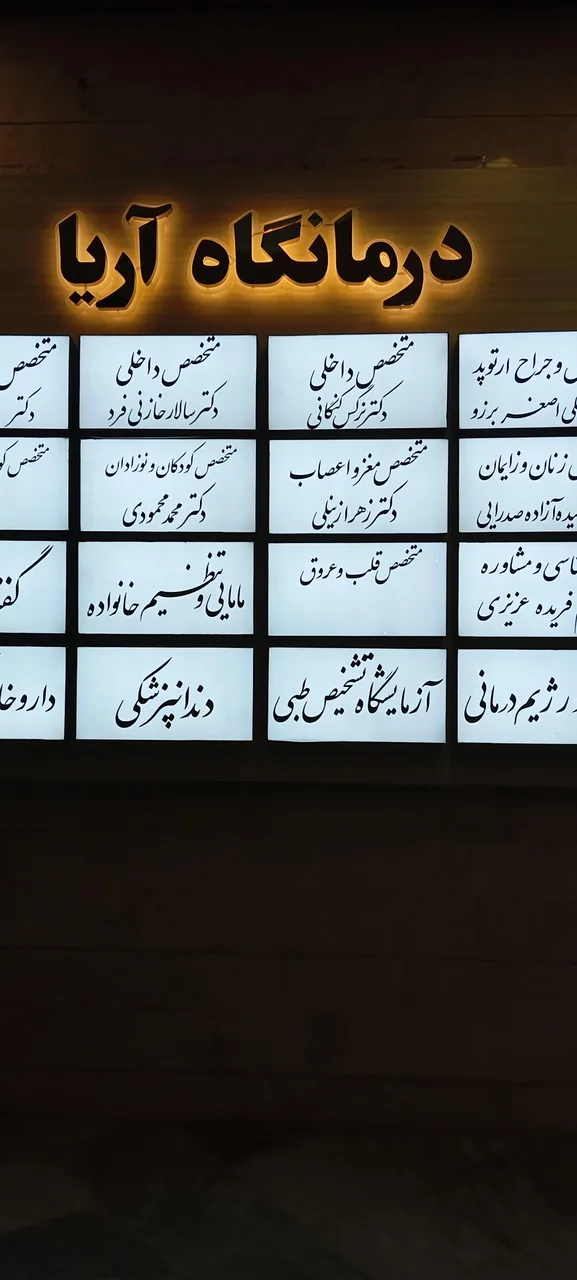 درمانگاه آریا
و جراح ارتوپد
اصغر برزو
متخصص داخلی
دکتر نرگس کنگانی
متخصص داخلی
دکتر سالار خازنی فرد
متخصص
دکتر
زنان و زایمان
آزاده صدرایی
متخصص مغز و اعصاب
دکتر زهرا زینلی
متخصص کودکان و نوزادان
دکتر محمد محمودی
متخصص
و مشاوره
فریده عزیزی
متخصص قلب و عروق
مامایی و تنظیم خانواده
رژیم درمانی
آزمایشگاه تشخیص طبی
دندانپزشکی